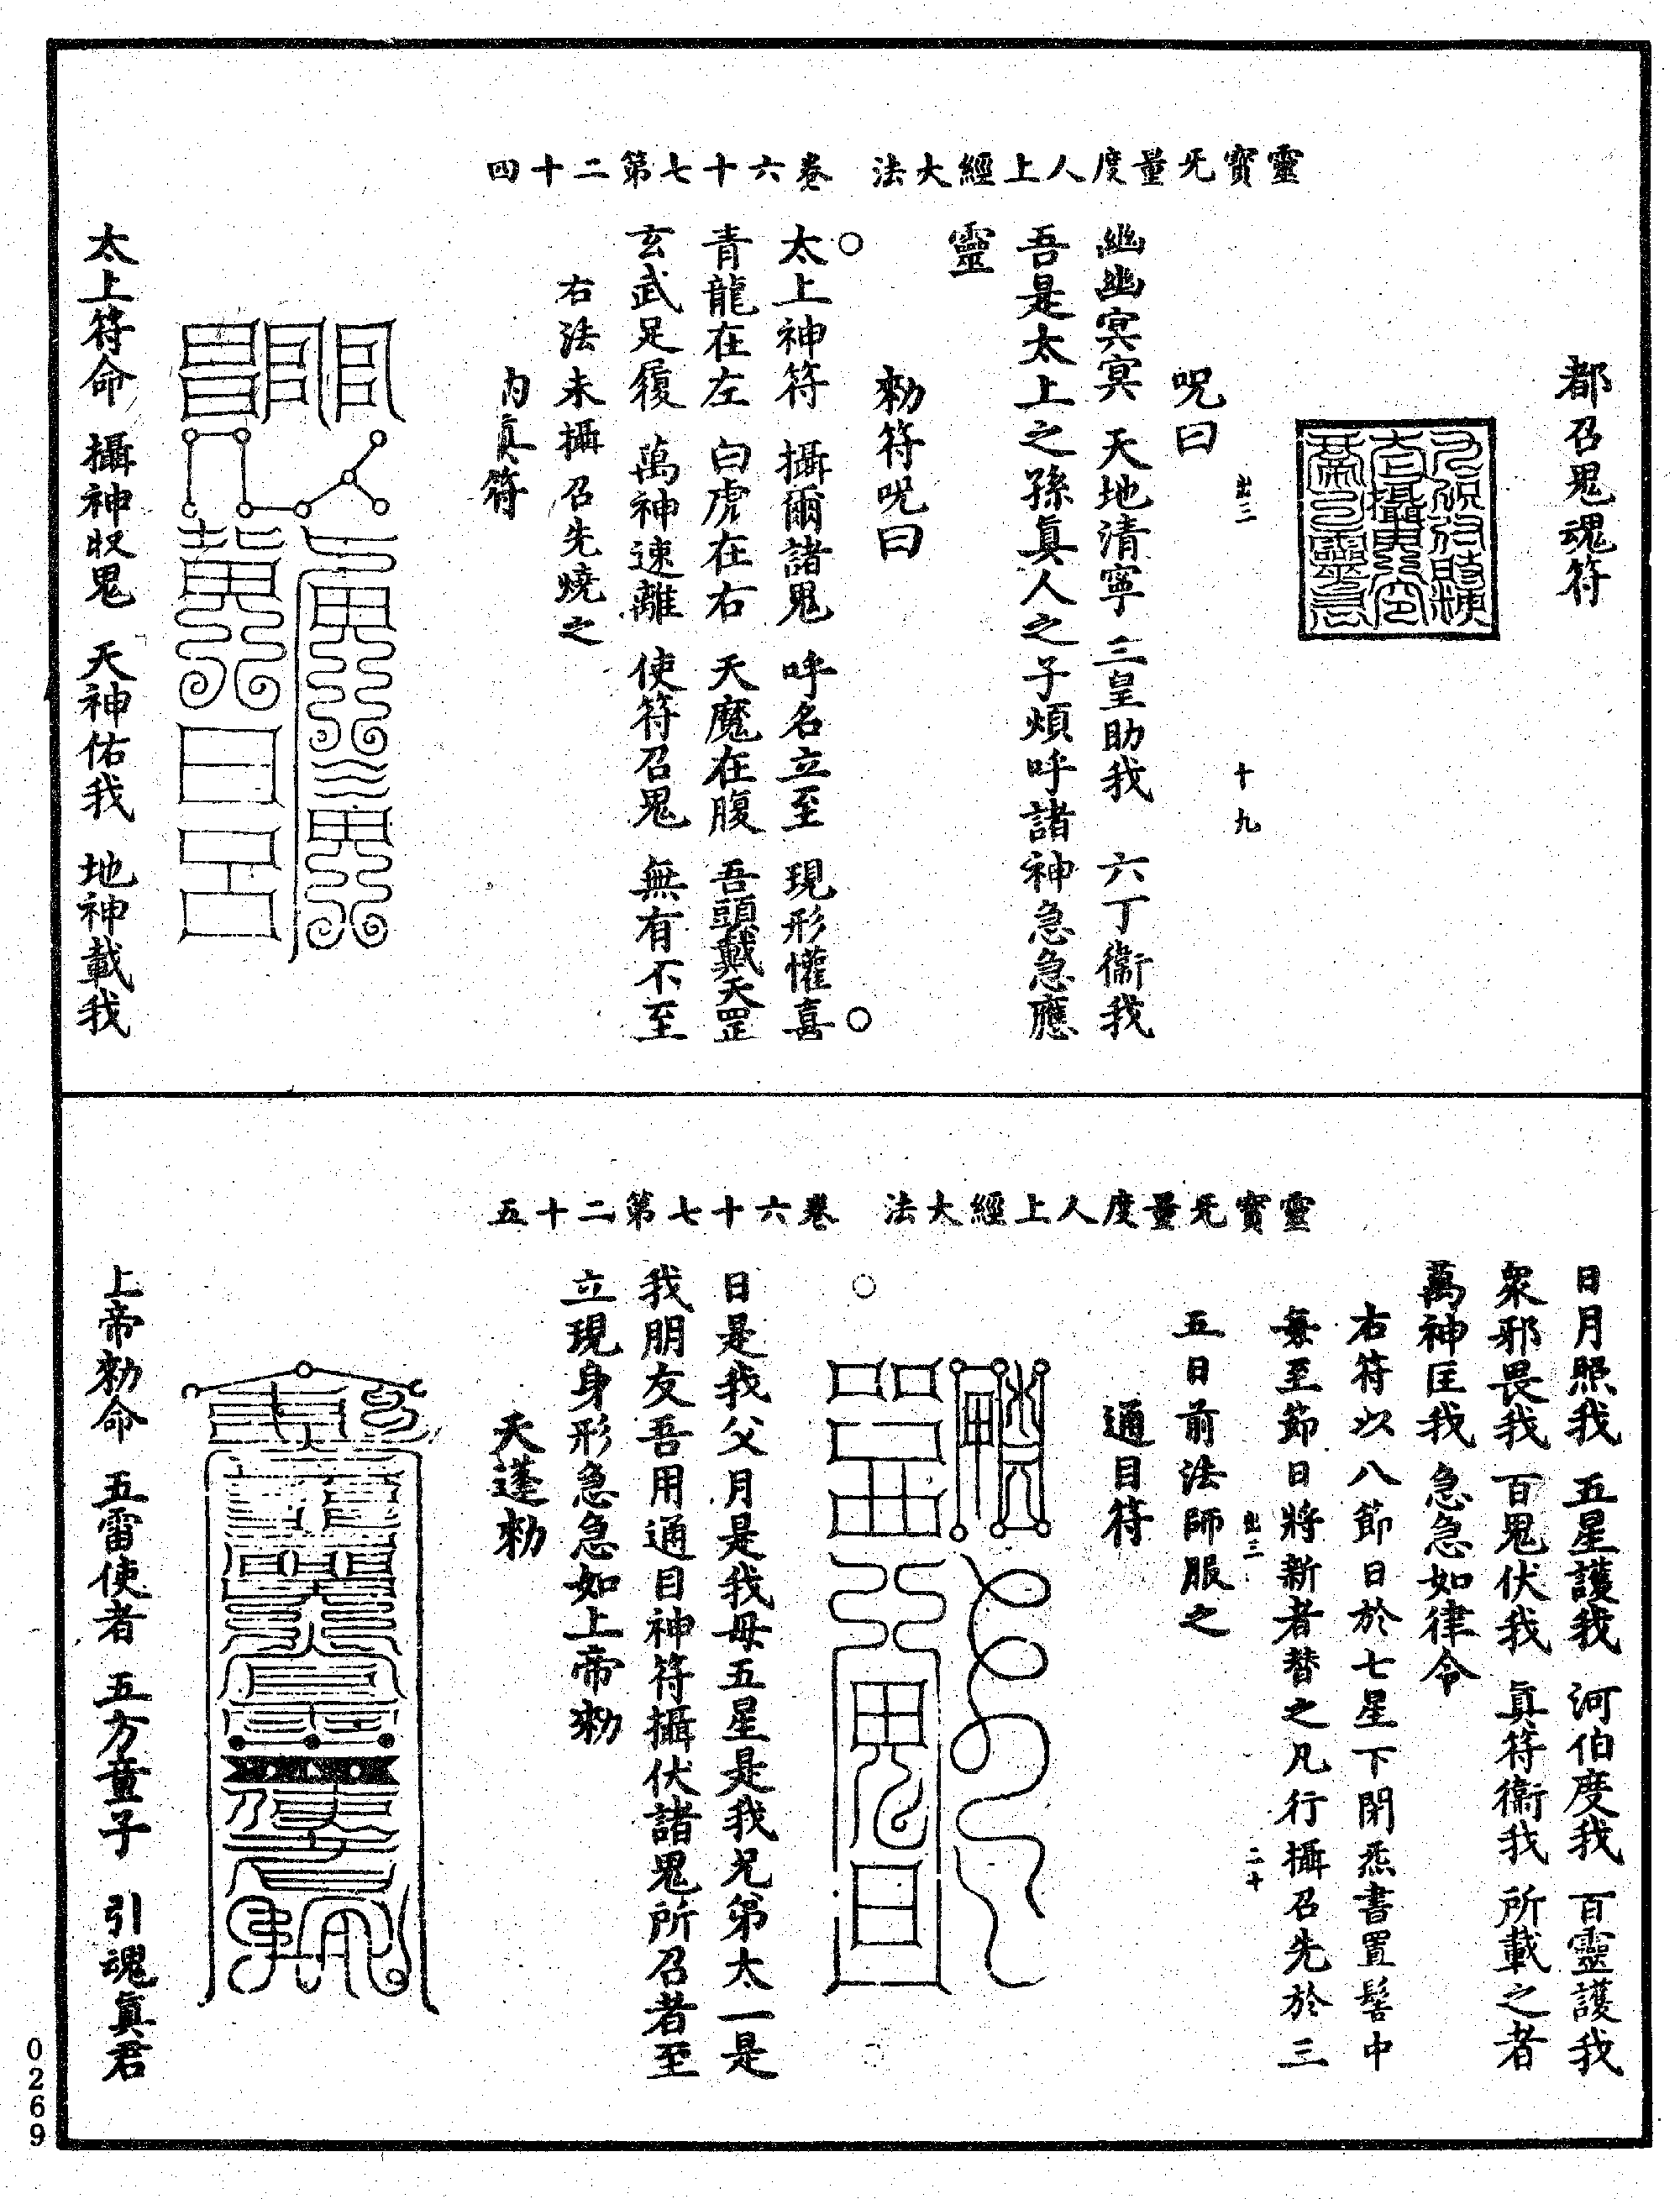 靈寳无量度人上經大法 卷六十七第二十四
都召鬼魂符
出三 十九
呪曰
幽幽冥冥 天地清寧 三皇助我 六丁衛我
吾是太上之孫眞人之子煩呼諸神急急應
靈
勑符呪曰
太上神符 攝爾諸鬼 呼名立至 現形懽喜
青龍在左 白虎在右 天魔在腹 吾頭戴天罡
玄武足履 萬神速離 使符召鬼 無有不至
右法未攝召先燒之
内眞符
太上符命 攝神収鬼 天神佑我 地神載我
靈寳无量度人上經大法 卷六十七第二十五
日月照我 五星護我 河伯度我 百靈護我
衆邪畏我 百鬼伏我 眞符衛我 所載之者
萬神匡我 急急如律令
右符以八節日於七星下閉炁書置髻中
每至節日將新者替之凡行攝召先於三
出三 二十
五日前法師服之
通目符
日是我父月是我母五星是我兄弟太一是
我朋友吾用通目神符攝伏諸鬼所召者至
立現身形急急如上帝勑
天蓬勑
上帝勑命 五雷使者 五方童子 引魂眞君
0269